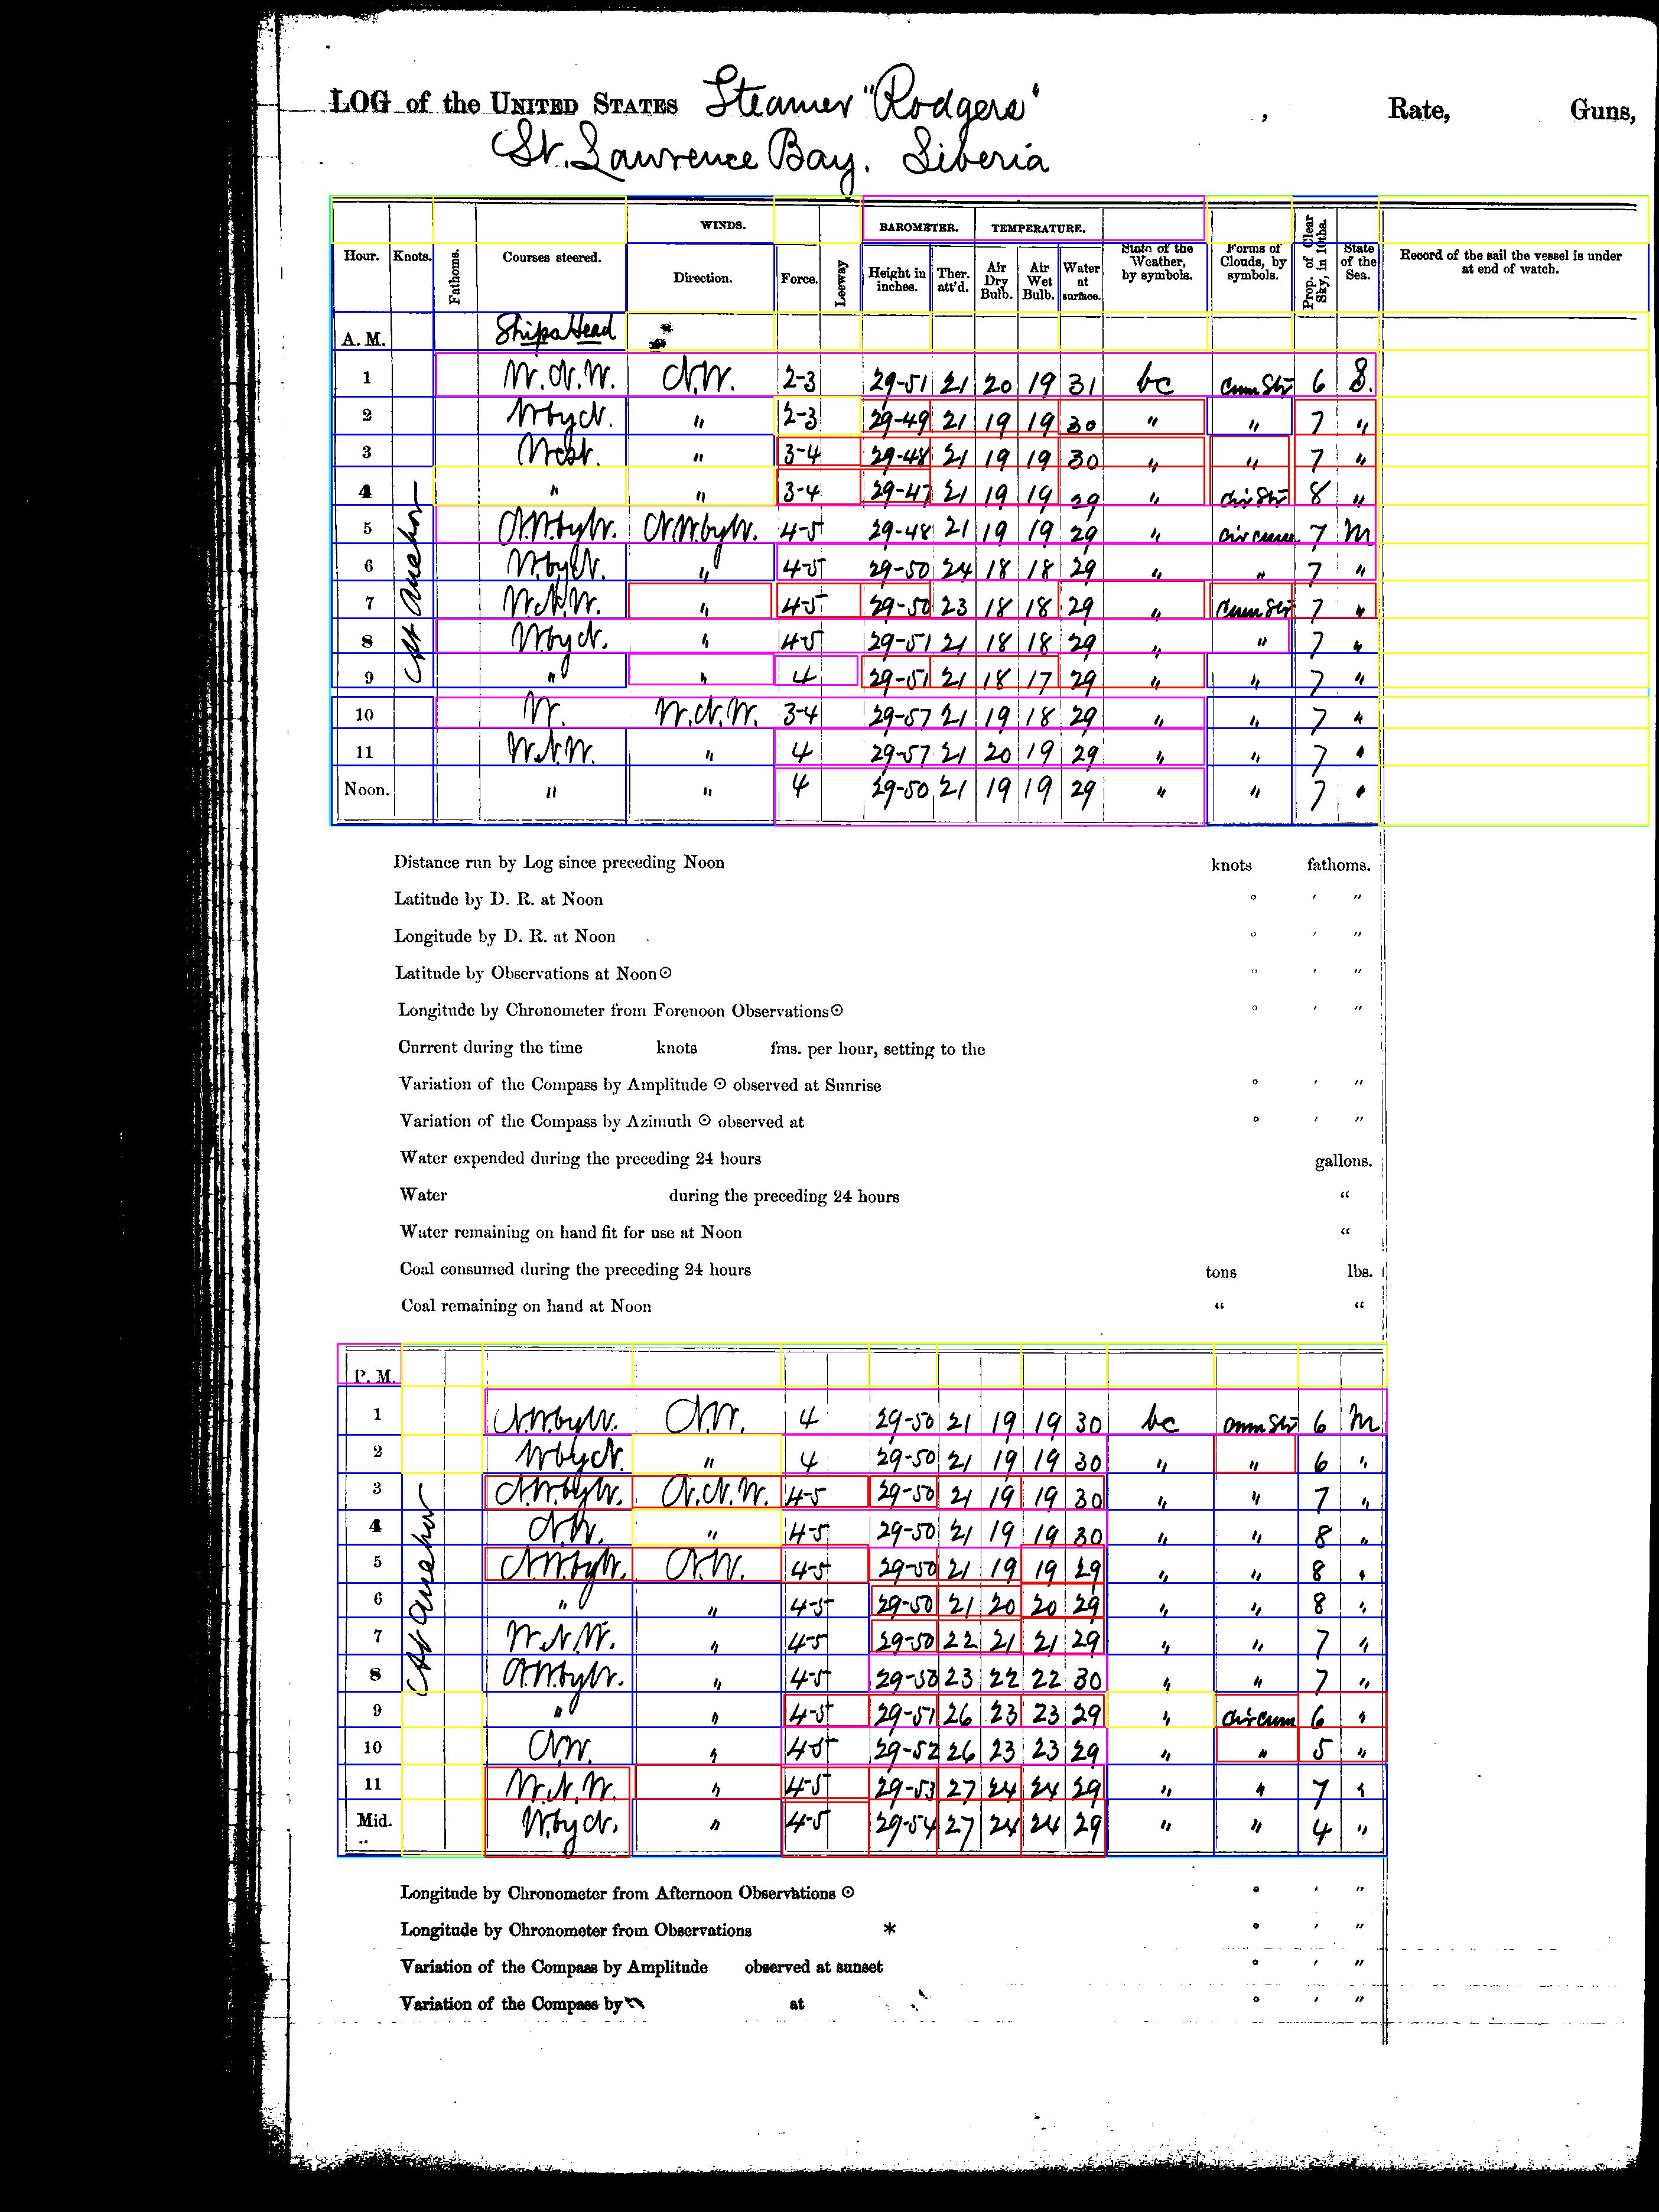 LOG of the UNITED STATES Steamer "Rodgers" , Rate, Guns,
St. Lawrence Bay. Siberia
WINDS. BAROMETER. TEMPERATURE.
Hour. Knots. Fathoms. Courses steered. Direction. Force. Leeway Height in inches. Ther. att'd. Air Dry Bulb. Air Wet Bulb. Water at surface. State of the Weather, by symbols. Forms of Clouds, by symbols. Prop. of Clear Sky, in 10ths. State of the Sea. Record of the sail the vessel is under at end of watch.
A. M. Ships Head
At Anchor
1 W.N.W. N.W. 2-3 29-51 21 20 19 31 bc Cum Str 6 S.
2 W by N. " 2-3 29-49 21 19 19 30 " " 7 "
3 West. " 3-4 29-48 21 19 19 30 " " 7 "
4 " " 3-4 29-47 21 19 19 29 " Cir Str 8 "
5 N.W. by W. N.W. by W. 4-5 29-48 21 19 19 29 " Cir cum 7 M
6 W. by N. " 4-5 29-50 24 18 18 29 " " 7 "
7 W.N.W. " 4-5 29-50 23 18 18 29 " Cum Str 7 "
8 W. by N. " 4-5 29-51 21 18 18 29 " " 7 "
9 " " 4 29-51 21 18 17 29 " " 7 "
10 W. W.N.W. 3-4 29-57 21 19 18 29 " " 7 "
11 W.N.W. " 4 29-57 21 20 19 29 " " 7 "
Noon. " " 4 29-50 21 19 19 29 " " 7 "
Distance run by Log since preceding Noon knots fathoms.
Latitude by D. R. at Noon ° ′ ″
Longitude by D. R. at Noon ° ′ ″
Latitude by Observations at Noon ☉ ° ′ ″
Longitude by Chronometer from Forenoon Observations ☉ ° ′ ″
Current during the time knots fms. per hour, setting to the
Variation of the Compass by Amplitude ☉ observed at Sunrise ° ′ ″
Variation of the Compass by Azimuth ☉ observed at ° ′ ″
Water expended during the preceding 24 hours gallons.
Water during the preceding 24 hours "
Water remaining on hand fit for use at Noon "
Coal consumed during the preceding 24 hours tons lbs.
Coal remaining on hand at Noon " "
P. M.
At Anchor
1 N.W. by W. N.W. 4 29-50 21 19 19 30 bc Cum Str 6 M
2 W by N. " 4 29-50 21 19 19 30 " " 6 "
3 N.W. by W. N.N.W. 4-5 29-50 21 19 19 30 " " 7 "
4 N.W. " 4-5 29-50 21 19 19 30 " " 8 "
5 N.W. by W. N.W. 4-5 29-50 21 19 19 29 " " 8 "
6 " " 4-5 29-50 21 20 20 29 " " 8 "
7 W.N.W. " 4-5 29-50 22 21 21 29 " " 7 "
8 N.W. by W. " 4-5 29-50 23 22 22 30 " " 7 "
9 " " 4-5 29-51 26 23 23 29 " Cir cum 6 "
10 N.W. " 4-5 29-52 26 23 23 29 " " 5 "
11 W.N.W. " 4-5 29-53 27 24 24 29 " " 7 "
Mid. W. by N. " 4-5 29-54 27 24 24 29 " " 4 "
Longitude by Chronometer from Afternoon Observations ☉ ° ′ ″
Longitude by Chronometer from Observations * ° ′ ″
Variation of the Compass by Amplitude observed at sunset ° ′ ″
Variation of the Compass by at ° ′ ″